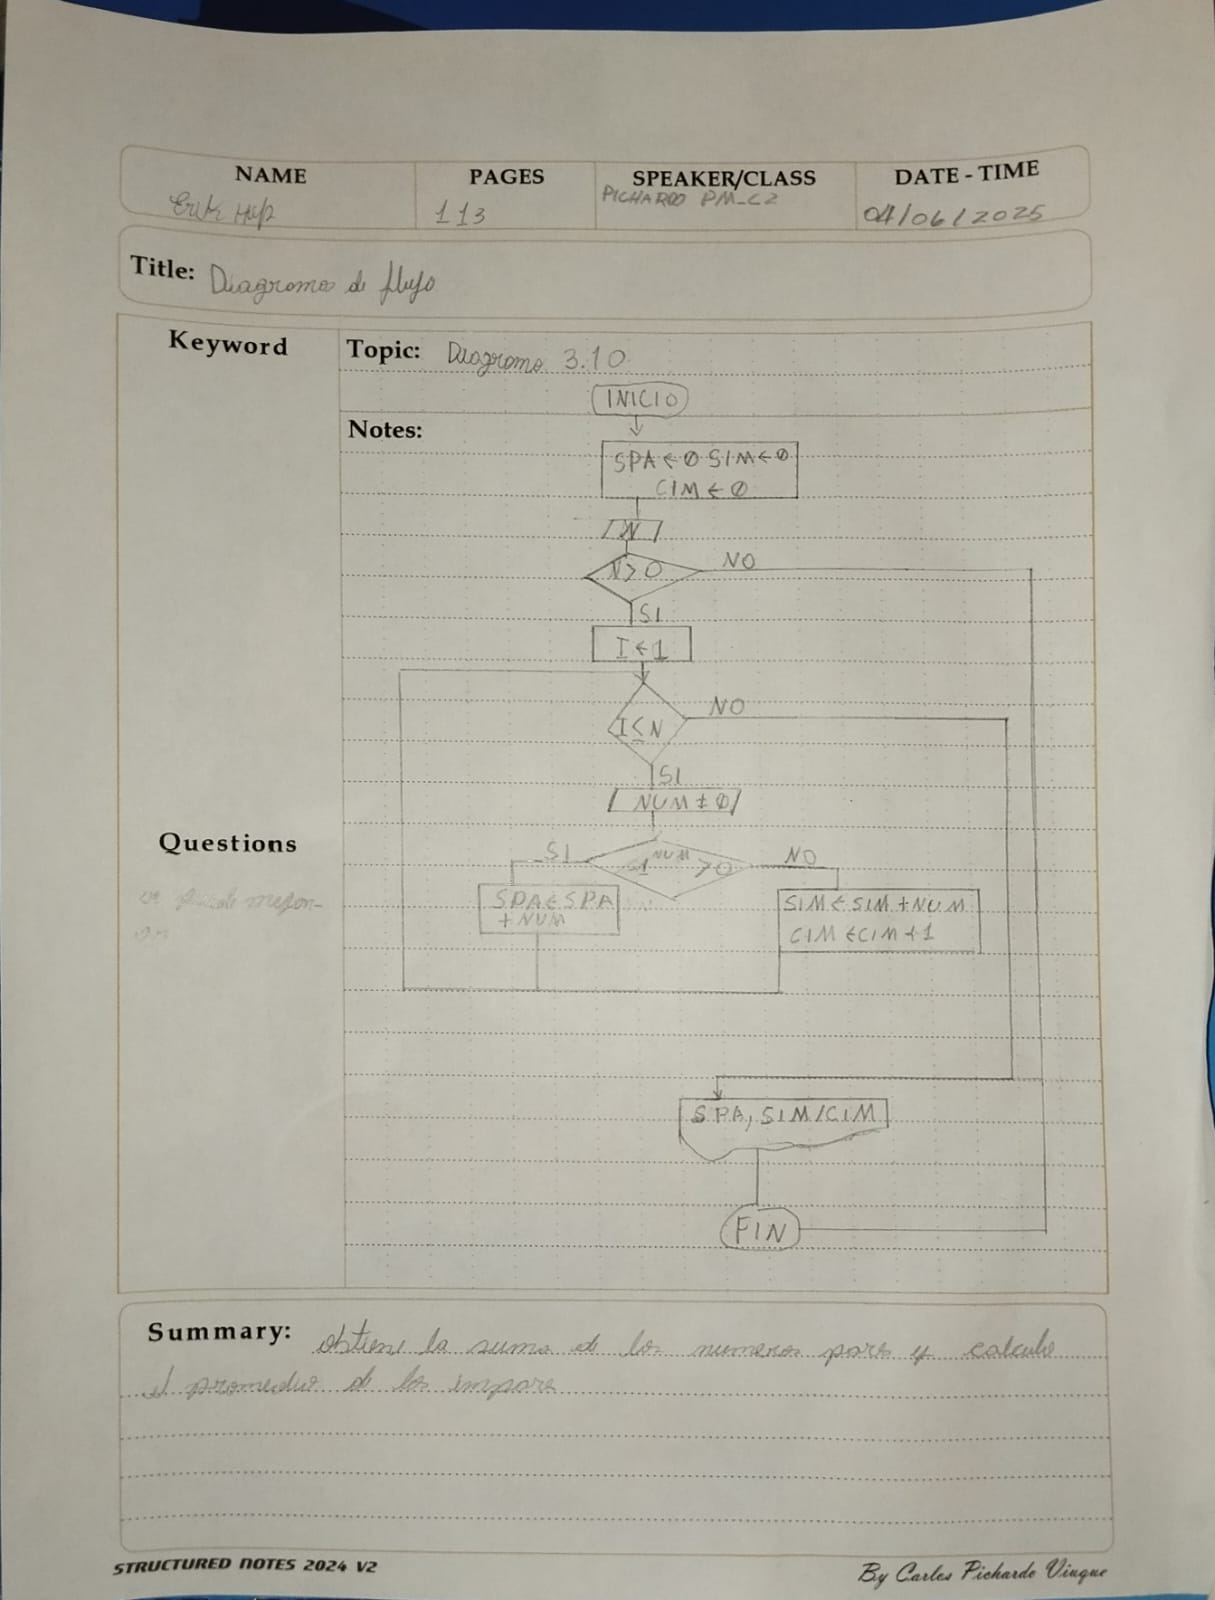 NAME PAGES SPEAKER/CLASS DATE - TIME
Erik 113 PICHARDO PM_C2 04/06/2025
Title: Diagramas de flujo
Keyword
Topic: Diagrama 3.10
INICIO
Notes:
SPA ← 0 SIM ← 0
CIM ← 0
N
N > 0 NO
SI
I ← 1
I ≤ N NO
SI
NUM ≠ 0
Questions
SI -1^NUM > 0 NO
SPA ← SPA
+ NUM
SIM ← SIM + NUM
CIM ← CIM + 1
SPA, SIM/CIM
FIN
Summary: obtiene la suma de los numeros pares y calcula
el promedio de los impares
STRUCTURED NOTES 2024 V2
By Carlos Pichardo Viuque